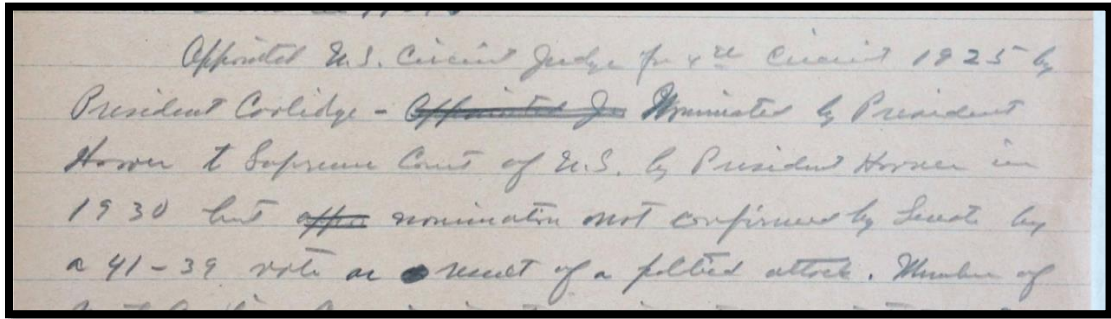 Appointed U.S. Circuit Judge for 4th Circuit 1925 by
President Coolidge - Appointed Ju Nominated by President
Hoover to Supreme Court of U.S. by President Hoover in
1930 but appo nomination not confirmed by Senate by
a 41-39 vote as result of a political attack. Member of